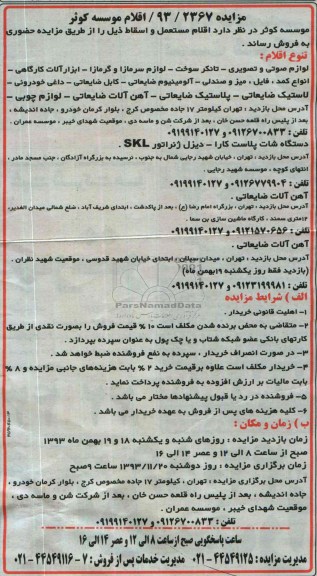 مزایده ۲۳۶۷ / ۹۳ / اقلام موسسه کوثر
موسسه کوثر در نظر دارد اقلام مستعمل و اسقاط ذیل را از طریق مزایده حضوری
به فروش رساند .
تنوع اقلام :
لوازم صوتی و تصویری - تانکر سوخت - لوازم سرمازا و گرمازا - ابزارآلات کارگاهی -
انواع کمد ، فایل ، میز و صندلی - آلومینیوم ضایعاتی - کابل ضایعاتی - داغی خودرویی -
لاستیک ضایعاتی - پلاستیک ضایعاتی - آهن آلات ضایعاتی - لوازم چوبی -
آدرس محل بازدید : تهران کیلومتر ۱۷ جاده مخصوص کرج ، بلوار کرمان خودرو ، جاده اندیشه ،
بعد از پلیس راه قلعه حسن خان ، بعد از شرکت شن و ماسه دی ، موقعیت شهدای خیبر ، موسسه عمران .
تلفن : ۰۹۱۲۶۷۰۰۸۳۳ و ۰۹۱۹۹۱۴۰۱۲۷
دستگاه شات پلاست کارا - دیزل ژنراتور SKL
آدرس محل بازدید : تهران ، خیابان شهید رجایی شمال به جنوب ، نرسیده به بزرگراه آزادگان ، جنب مسجد مادر ،
انتهای کوچه ، موسسه شهید رجایی .
تلفن : ۰۹۱۲۶۷۷۹۹۰۴ و ۰۹۱۹۹۱۴۰۱۲۷
آهن آلات ضایعاتی .
آدرس محل بازدید : تهران ، بزرگراه امام رضا (ع) ، بعد از پاکدشت ، ابتدای شریف آباد ، ضلع شمالی میدان الغدیر ،
۱۲متری سمند ، کارگاه ماشین سازی بن سما .
تلفن : ۰۹۱۲۱۵۷۰۶۵۶ و ۰۹۱۹۹۱۴۰۱۲۷
آهن آلات ضایعاتی .
آدرس محل بازدید : تهران ، میدان سبلان ، ابتدای خیابان شهید قدوسی ، موقعیت شهید نظران .
(بازدید فقط روز یکشنبه ۱۹بهمن ماه)
تلفن : ۰۹۱۲۳۱۹۹۹۸۱ و ۰۹۱۹۹۱۴۰۱۲۷
الف ) شرایط مزایده
۱- اهلیت قانونی خریدار .
۲- متقاضی به محض برنده شدن مکلف است ۱۰ % قیمت فروش را بصورت نقدی از طریق
کارتهای بانکی عضو شبکه شتاب و یا چک پول به عنوان سپرده بپردازد .
۳- در صورت انصراف خریدار ، سپرده به نفع فروشنده ضبط خواهد شد .
۴- خریدار مکلف است علاوه برقیمت خرید ۲ % بابت هزینه‌های جانبی مزایده و ۸ %
بابت مالیات بر ارزش افزوده به فروشنده پرداخت نماید .
۵- فروشنده در رد یا قبول پیشنهادها مختار می باشد .
۶- کلیه هزینه های پس از فروش به عهده خریدار می باشد .
ب ) زمان و مکان :
زمان بازدید مزایده : روزهای شنبه و یکشنبه ۱۸ و ۱۹ بهمن ماه ۱۳۹۳
صبح از ساعت ۸ الی ۱۲ و عصر ۱۴ الی ۱۶
زمان برگزاری مزایده : روز دوشنبه ۱۳۹۳/۱۱/۲۰ ساعت ۹صبح
آدرس محل برگزاری مزایده : تهران، کیلومتر ۱۷ جاده مخصوص کرج ، بلوار کرمان خودرو ،
جاده اندیشه ، بعد از پلیس راه قلعه حسن خان ، بعد از شرکت شن و ماسه دی ،
موقعیت شهدای خیبر ، موسسه عمران .
تلفن : ۰۹۱۲۶۷۰۰۸۳۳ و ۰۹۱۹۹۱۴۰۱۲۷
ساعت پاسخگویی صبح از ساعت ۸ الی ۱۲ و عصر ۱۴ الی ۱۶
مدیریت مزایده : ۴۴۵۴۹۱۲۵ - ۰۲۱ مدیریت خدمات پس از فروش : ۷ - ۴۴۵۴۹۱۱۶ - ۰۲۱